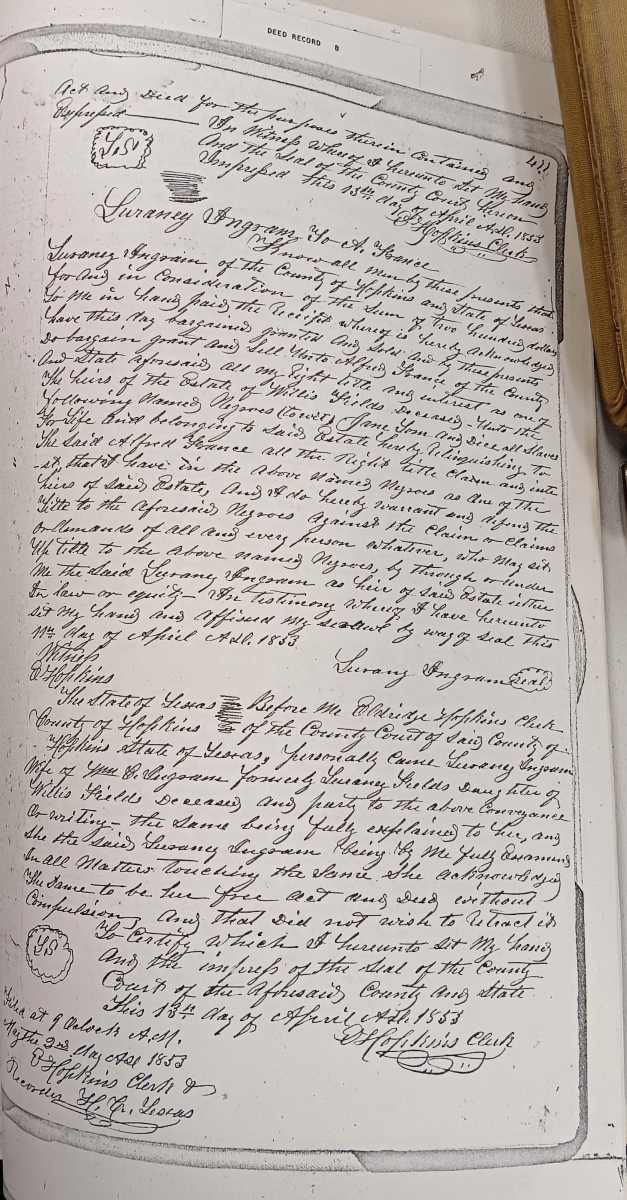 DEED RECORD B
411
Act and Deed for the purposes therein contained and
Expressed In Witness whereof I hereunto Set My hand
L.S. and the Seal of the County Court hereon
Impressed this 13th day of April A.D. 1853
E Hopkins Clerk
Luraney Ingram To A. France
Know all men by these presents that
Luraney Ingram of the County of Hopkins and State of Texas
for and in Consideration of the Sum of Two hundred dollars
to Me in hand paid the receipt whereof is hereby acknowledged
have this day bargained granted and Sold and by these presents
do bargain grant and Sell Unto Alfred France of the County
and State aforesaid all my right title and interest as one of
The heirs of the Estate of Willis Fields Deceased - Unto the
following Named Negroes (towit) Jane Tom and Dice all Slaves
For Life and belonging to Said Estate hereby relinquishing to
The Said Alfred France all the right title Claim and inte
-st that I have in the above Named Negroes as one of the
heirs of Said Estate, and I do hereby warrant and defend the
title to the aforesaid Negroes against the Claim or Claims
or demands of all and every person whatever, who May Sit
Up title to the above named Negroes, by through or Under
Me the Said Luraney Ingram as heir of Said Estate either
In law or equity - In testimony whereof I have hereunto
Sit My hand and affixed my Scrawl by way of Seal this
11th day of April A.D. 1853
Witness
E Hopkins
Lurany Ingram Seal
The State of Texas Before Me Eldridge Hopkins Clerk
County of Hopkins of the County Court of Said County of
Hopkins State of Texas, personally came Luraney Ingram
Wife of Wm C. Ingram formerly Luraney Fields Daughter of
Willis Fields Deceased and party to the above Conveyance
Or writing - the Same being fully explained to her, and
She the Said Luraney Ingram being by Me fully Examined
In all Matter touching the Same She acknowledged
The Same to be her free act and Deed without
Compulsion, and that Did not wish to retract it
L.S. To Certify which I hereunto Sit My hand
And the impress of the Seal of the County
Court of the aforesaid County and State
This 13th day of April A.D. 1853
E Hopkins Clerk
Filed at 9 Oclock A.M.
May the 2nd day AD 1853
E Hopkins Clerk &
Recorder H. C. Texas